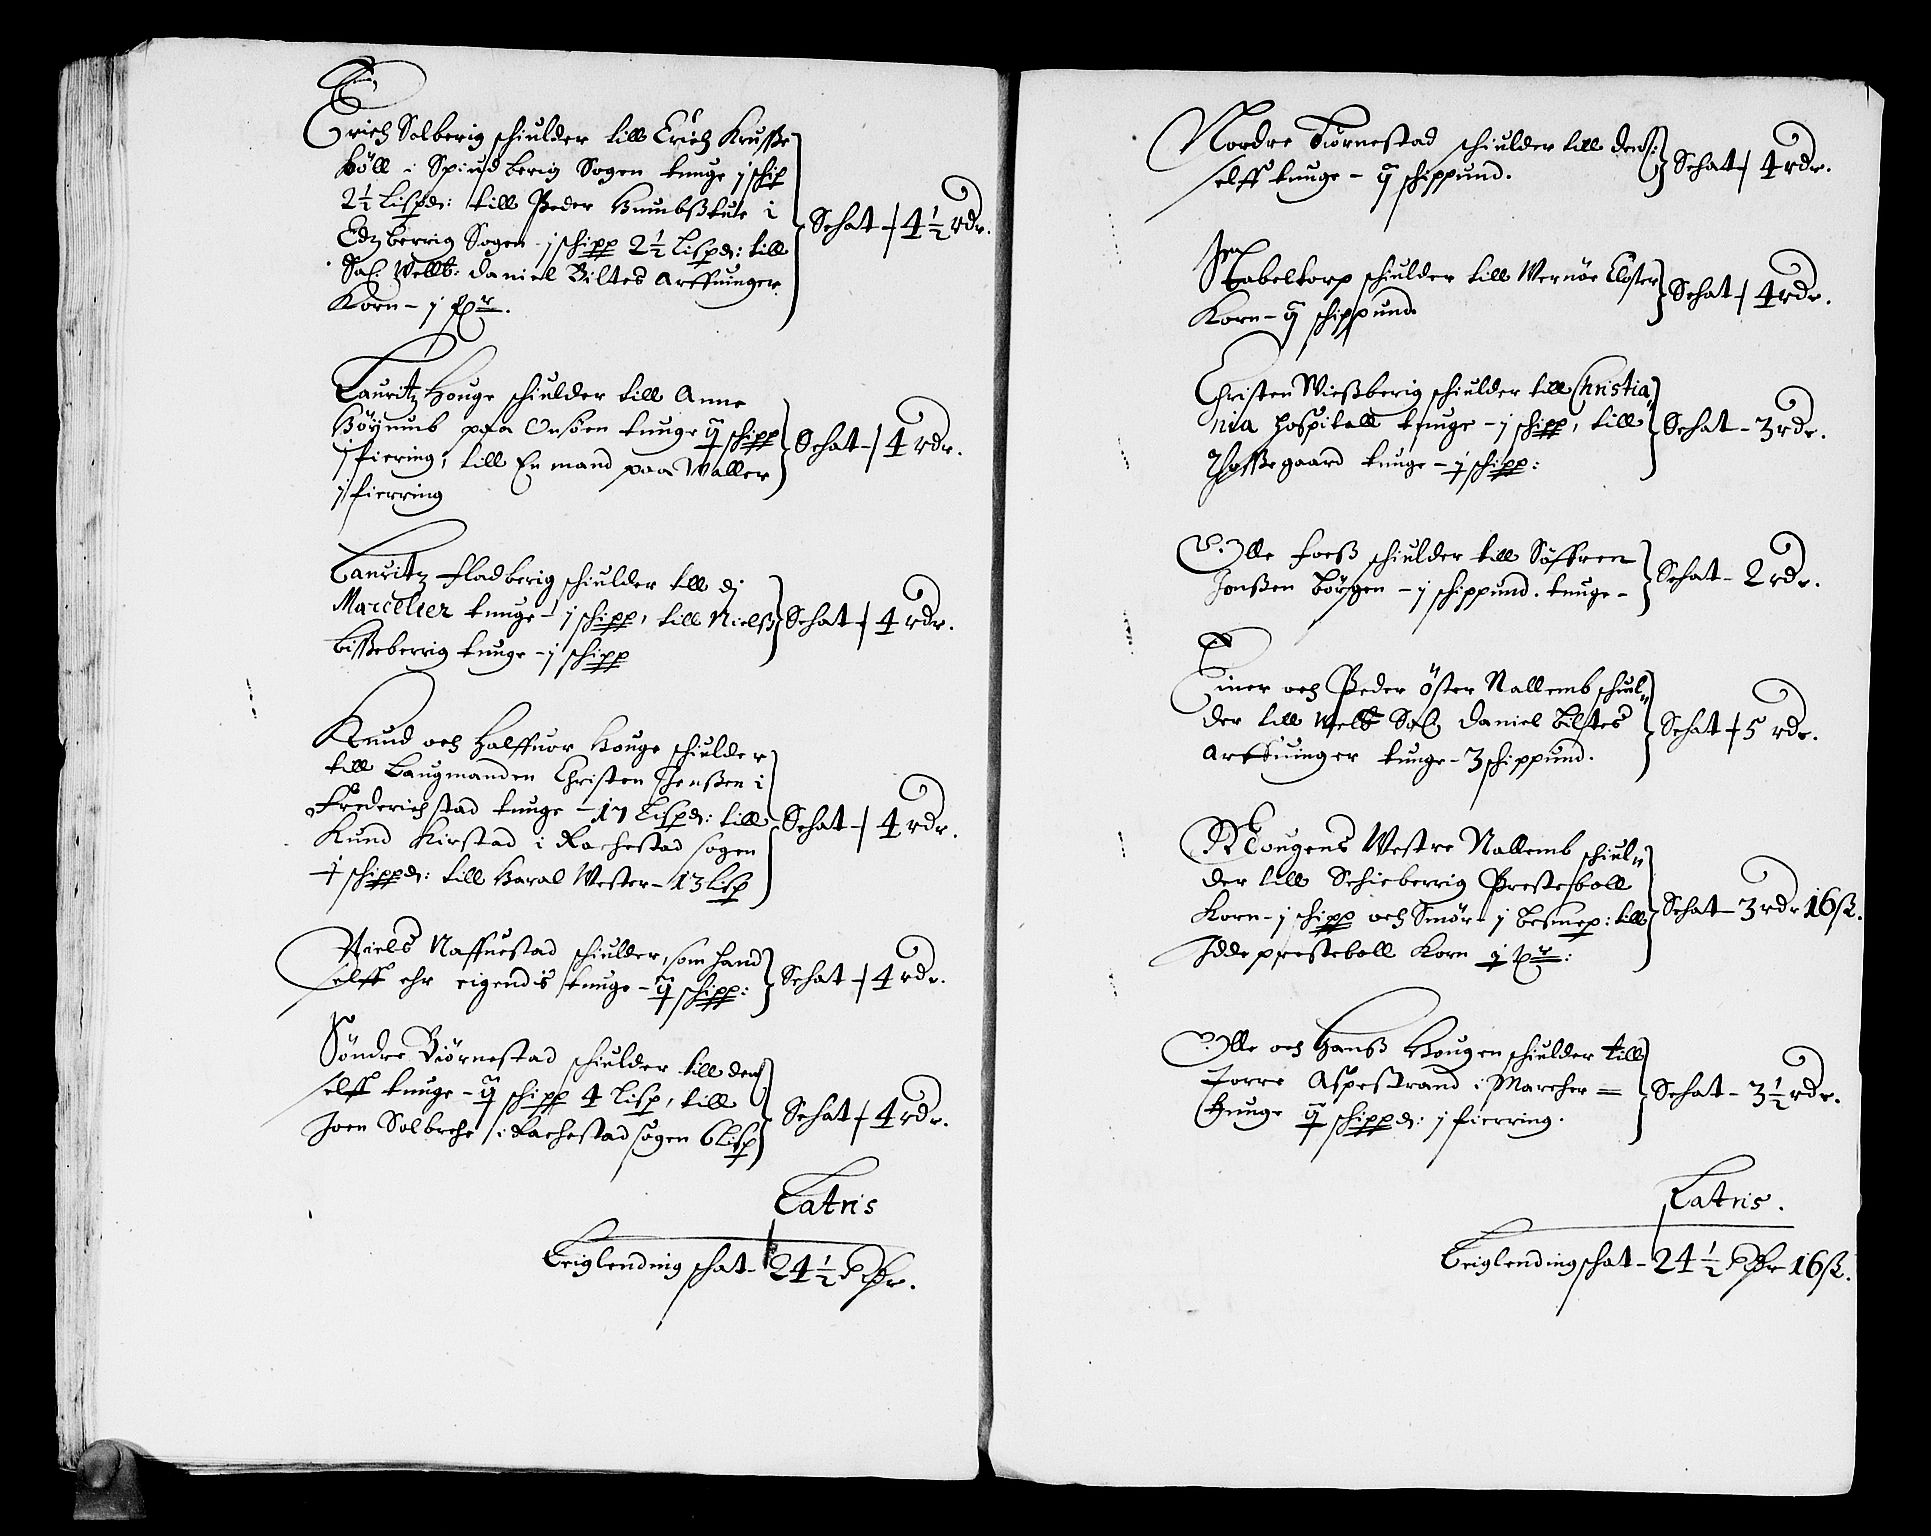 Erich Solberig schiulder till Erich Krusse
höll i Spindberig Sogen tunge j schip
2½ Lispd: till Peder i
Edzberrig Sogen j schipp 2½ Lispd: till
Sal. Wellb: Daniel Biltes Arffuinger
Korn - j
Schat - 4½ rdr.
Lauritz Houge schiulder till Anne
paa Onsöen tunge ij schipp
j fiering, till En mand paa Waller
j fierring
Schat - 4 rdr.
Lauritz Fladberig schiulder till dj
Marcelier tunge - j schipp, till Nielss
Bisseberrig tunge - j schipp
Schat - 4 rdr.
Knud och Halffuor Houge schiulder
till Laugmanden Christen Jensen i
Frederichstad tunge - 17 Lispd: till
Knud Kirstad i Rachestad sogen
j schippd: till Haral Wester - 13 lisp
Schat - 4 rdr.
Niels Naffnestad schiulder, som hand
selff ehr eigendis tunge - ij schipp:
Schat - 4 rdr.
Söndre Biörnestad schiulder till den
selff tunge - ij schipp 4 Lisp, till
Joen Solbrche i Rachestad sogen 6 lisp
Schat - 4 rdr.
Latris
Leiglending schat - 24½ Rdr.
Nordre Biörnestad schiulder till den
selff tunge - ij schippund.
Schat - 4 rdr.
Stabeltorp schiulder till Wernöe Closter
Korn - ij schippund
Schat - 4 rdr.
Christen Wissberig schiulder till Christia,,
nia Hospitall tunge - j schipp, till
Hoffsegaard tunge - j schipp:
Schat - 3 rdr.
Olle Foess schiulder till Söffren
Jonssen Börgen - j schippund. tunge -
Schat - 2 rdr.
Einer och Peder Öster Nallemb schiul,,
der till Welb Sal Daniel Biltes
Arffuinger tunge - 3 schippund.
Schat - 5 rdr.
Mougens Westre Nallemb schiul,,
der till Schieberrig Presteboll
Korn - j schipp och Smör - j besmep: till
Idde presteboll Korn
Schat - 3 rdr 16 ß.
Olle och Hanss Hougen schiulder till
Torre Aspestrand i Marcher =
Hunge ij schippd: j fierring.
Schat - 3½ rdr.
Latris.
Leiglending schat - 24½ Rdr 16 ß.